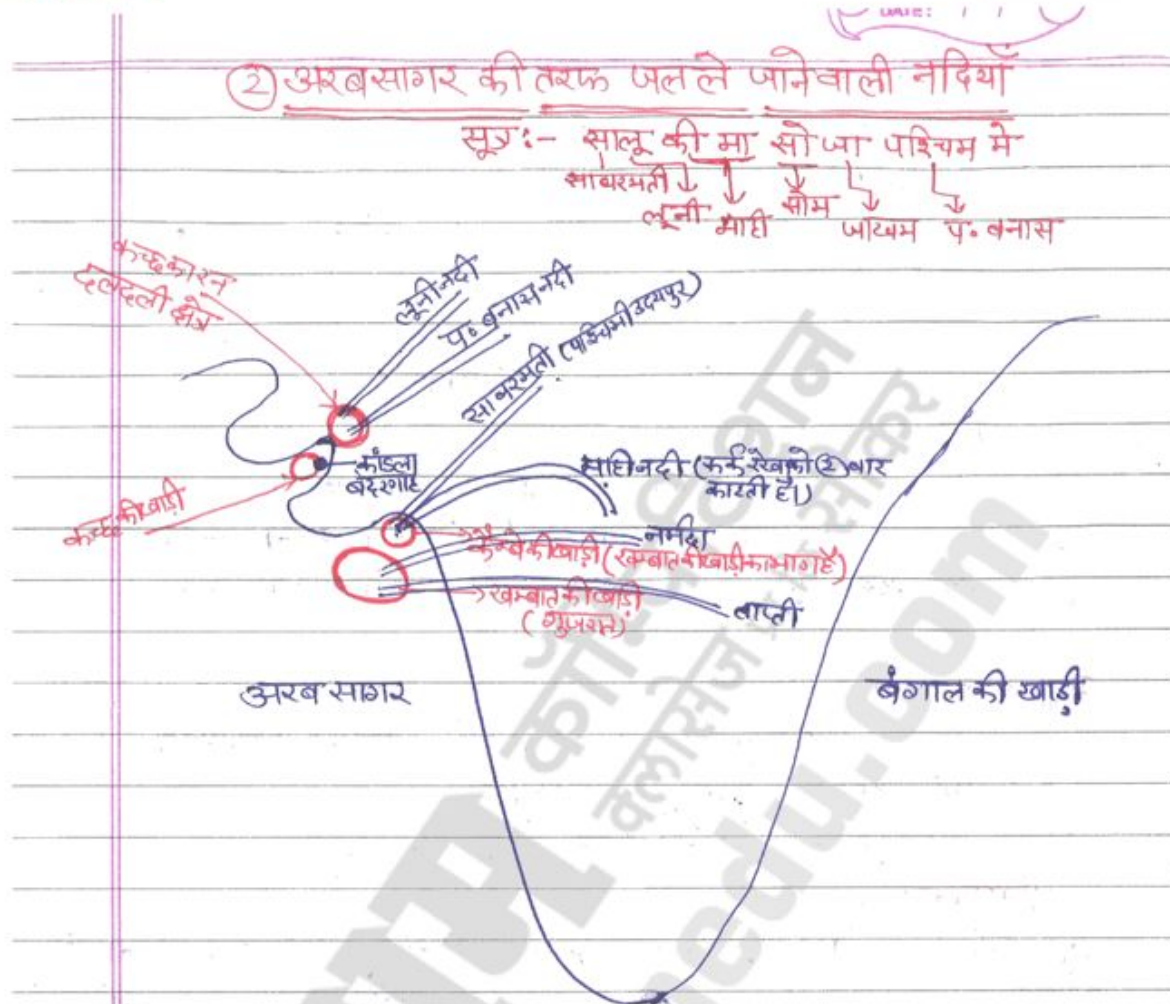 DATE: / /
② अरब सागर की तरफ जल ले जाने वाली नदियाँ
सूत्र:- सालू की मा सो जा पश्चिम मे
साबरमती लूनी माही सोम जाखम प॰ बनास
कच्छ का रन
दलदली क्षेत्र
लूनी नदी
प॰ बनास नदी
साबरमती (पश्चिमी उदयपुर)
कांडला
बंदरगाह
कच्छ की खाड़ी
माही नदी (कर्क रेखा को (2) बार
काटती है।)
नर्मदा
कैम्बे की खाड़ी (खम्बात की खाड़ी का भाग है)
खम्बात की खाड़ी
(गुजरात)
ताप्ती
अरब सागर
बंगाल की खाड़ी
क्लासेज
सीकर
medu.com